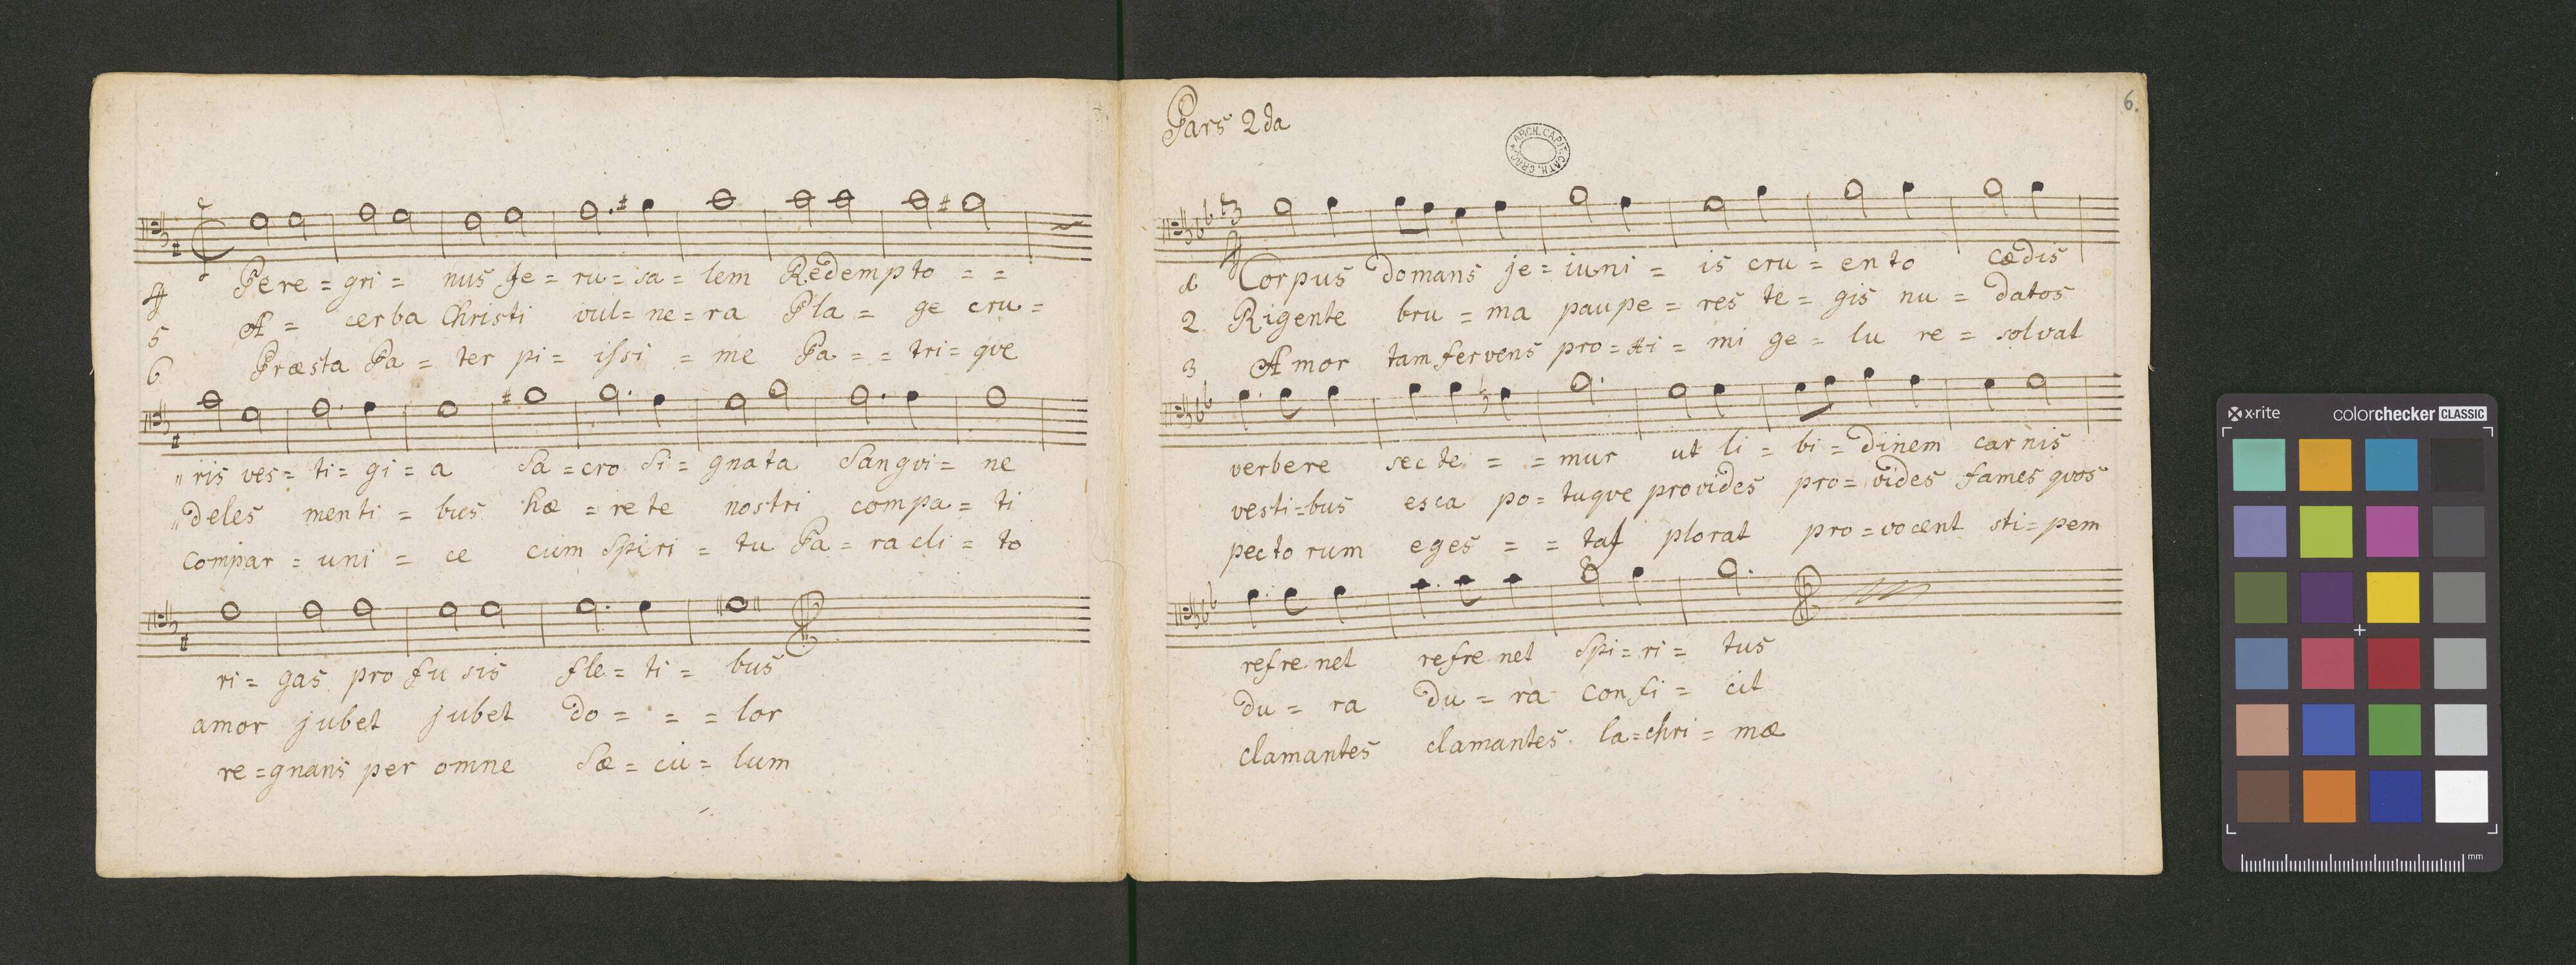 4 Pere = gri = nus Je = ru = sa = lem Redempto = =
5 A = cerba Christi vul = ne = ra Pla = ge cru =
6 Præsta Pa = ter pi = issi = me Pa = = tri = qve
" ris ves = ti = gi = a Sa = cro Si = gnata Sangvi = ne
" deles menti = bus hæ = rete nostri compa = ti
compar = uni = ce cum Spiri = tu Pa = racli = to
ri = gas profusis fle = ti = bus
amor jubet jubet do = = = lor
re = gnans per omne Sæ = cu = lum
Pars 2da
ARCH. CAPIT. CATH. CRAC.
6.
3
4
1 Corpus domans je = iuni = is cru = ento cædis
2 Rigente bru = ma paupe = res te = gis nu = datos
3 Amor tam fervens pro = xi = mi ge = lu re = solvat
verbere secte = = mur ut li = bi = dinem carnis
vesti = bus esca po = tuqve provides pro = vides fames qvos
pectorum eges = = tas plorat pro = vocent sti = pem
refrenet refrenet Spi = ri = tus
du = ra du = ra confi = cit
clamantes clamantes la = chri = mæ
x-rite colorchecker CLASSIC
mm